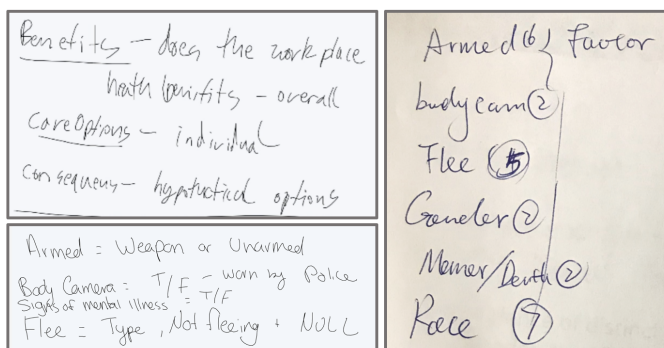 Benefits - does the workplace
health benifits - overall
Care Options - individual
Consequens - hypothetical options
Armed = Weapon or Unarmed
Body Camera = T/F - worn by Police
Signs of mental illness = T/F
Flee = Type, Not fleeing + NULL
Armed (6) } Factor
body cam (2)
Flee (5)
Gender (2)
/Death (2)
Race (7)